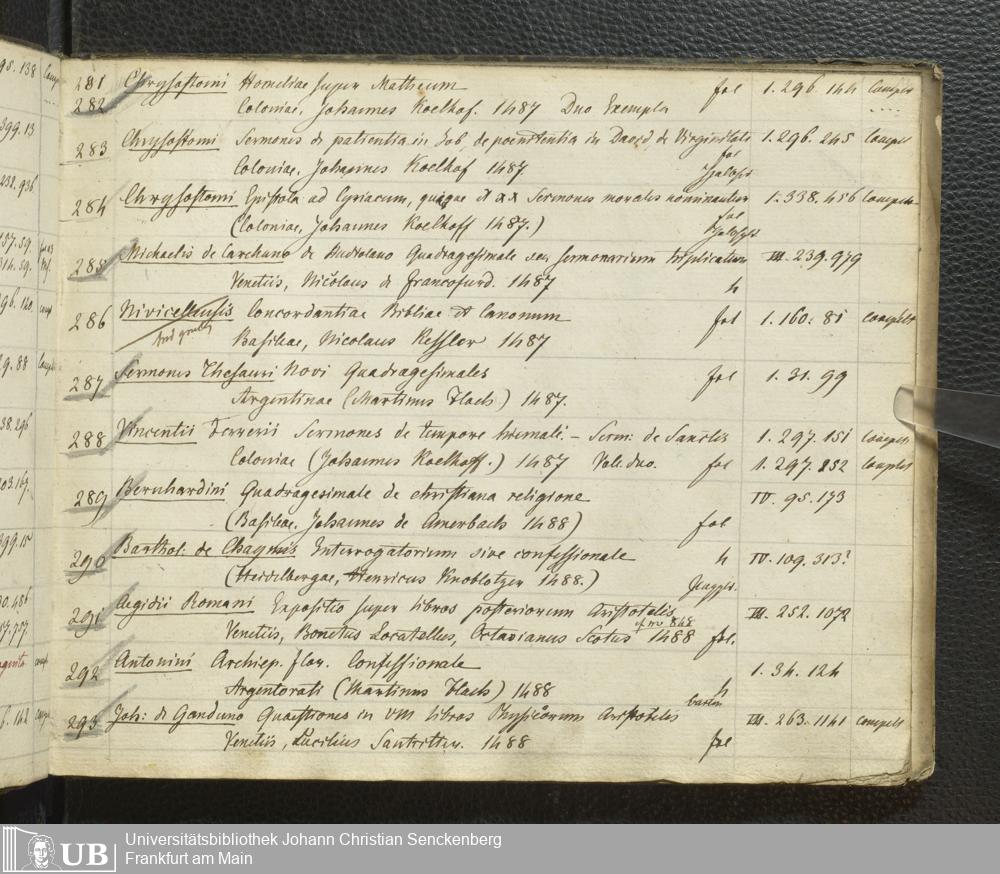 95. 138 Comp
281 Chrysostomi Homeliae super Matheum fol 1. 296. 144 Complet
282 Coloniae, Johannes Koelhof. 1487 Duo Exempla
399. 13
283 Chrysostomi Sermones de patientia in Job, de poenitentia in David de Virginitate 1. 296. 245 Complet
fol
Coloniae, Johannes Koelhof 1487
232. 936
284 Chrysostomi Epistola ad Cyriacum, quae et xx Sermones morales nominantur 1. 338. 456 Complet
fol
(Coloniae, Johannes Koelhoff 1487.)
285 Michaelis de Carchano de Mediolano Quadragesimale seu sermonarium triplicatum III. 239. 979
Venetiis, Nicolaus de Francofurd. 1487
h
286 Nivicellensis Concordantiae Bibliae et Canonum fol 1. 160. 81 complet
Basileae, Nicolaus Kessler 1487
287 Sermones Thesauri Novi Quadragesimales fol 1. 31. 99
Argentinae (Martinus Flach) 1487.
288 Vincentii Ferrerii Sermones de tempore hiemali. – Serm: de Sanctis 1. 297. 151 Complet
Coloniae (Johannes Koelhoff.) 1487 Vol. duo. fol 1. 297. 252 Complet
289 Bernhardini Quadragesimale de christiana religione IV. 95. 173
(Basileae, Johannes de Amerbach 1488) fol
290 Barthol: de Chaymis Interrogatorium sive confessionale h IV. 109. 313?
(Heidelbergae, Henricus Knoblotzer 1488.)
291 Aegidii Romani Expositio super libros posteriorum Aristotelis III. 252. 1072
cf no 848
Venetiis, Bonetus Locatellus, Octavianus Scotus 1488 fol.
292 Antonini Archiep. flor. Confessionale 1. 34. 124
Argentorati (Martinus Flach) 1488 h
293 Joh: de Ganduno Quaestiones in VIII libros Physicorum Aristotelis III. 263. 1141 complet
Venetiis, Lucilius Santritter. 1488 fol
UB Universitätsbibliothek Johann Christian Senckenberg
Frankfurt am Main